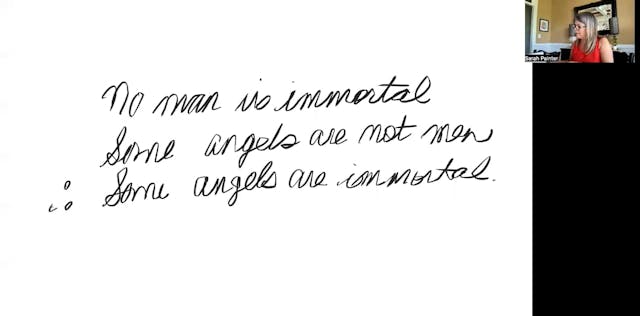 No man is immortal
Some angels are not men
∴ Some angels are immortal.
Sarah Painter